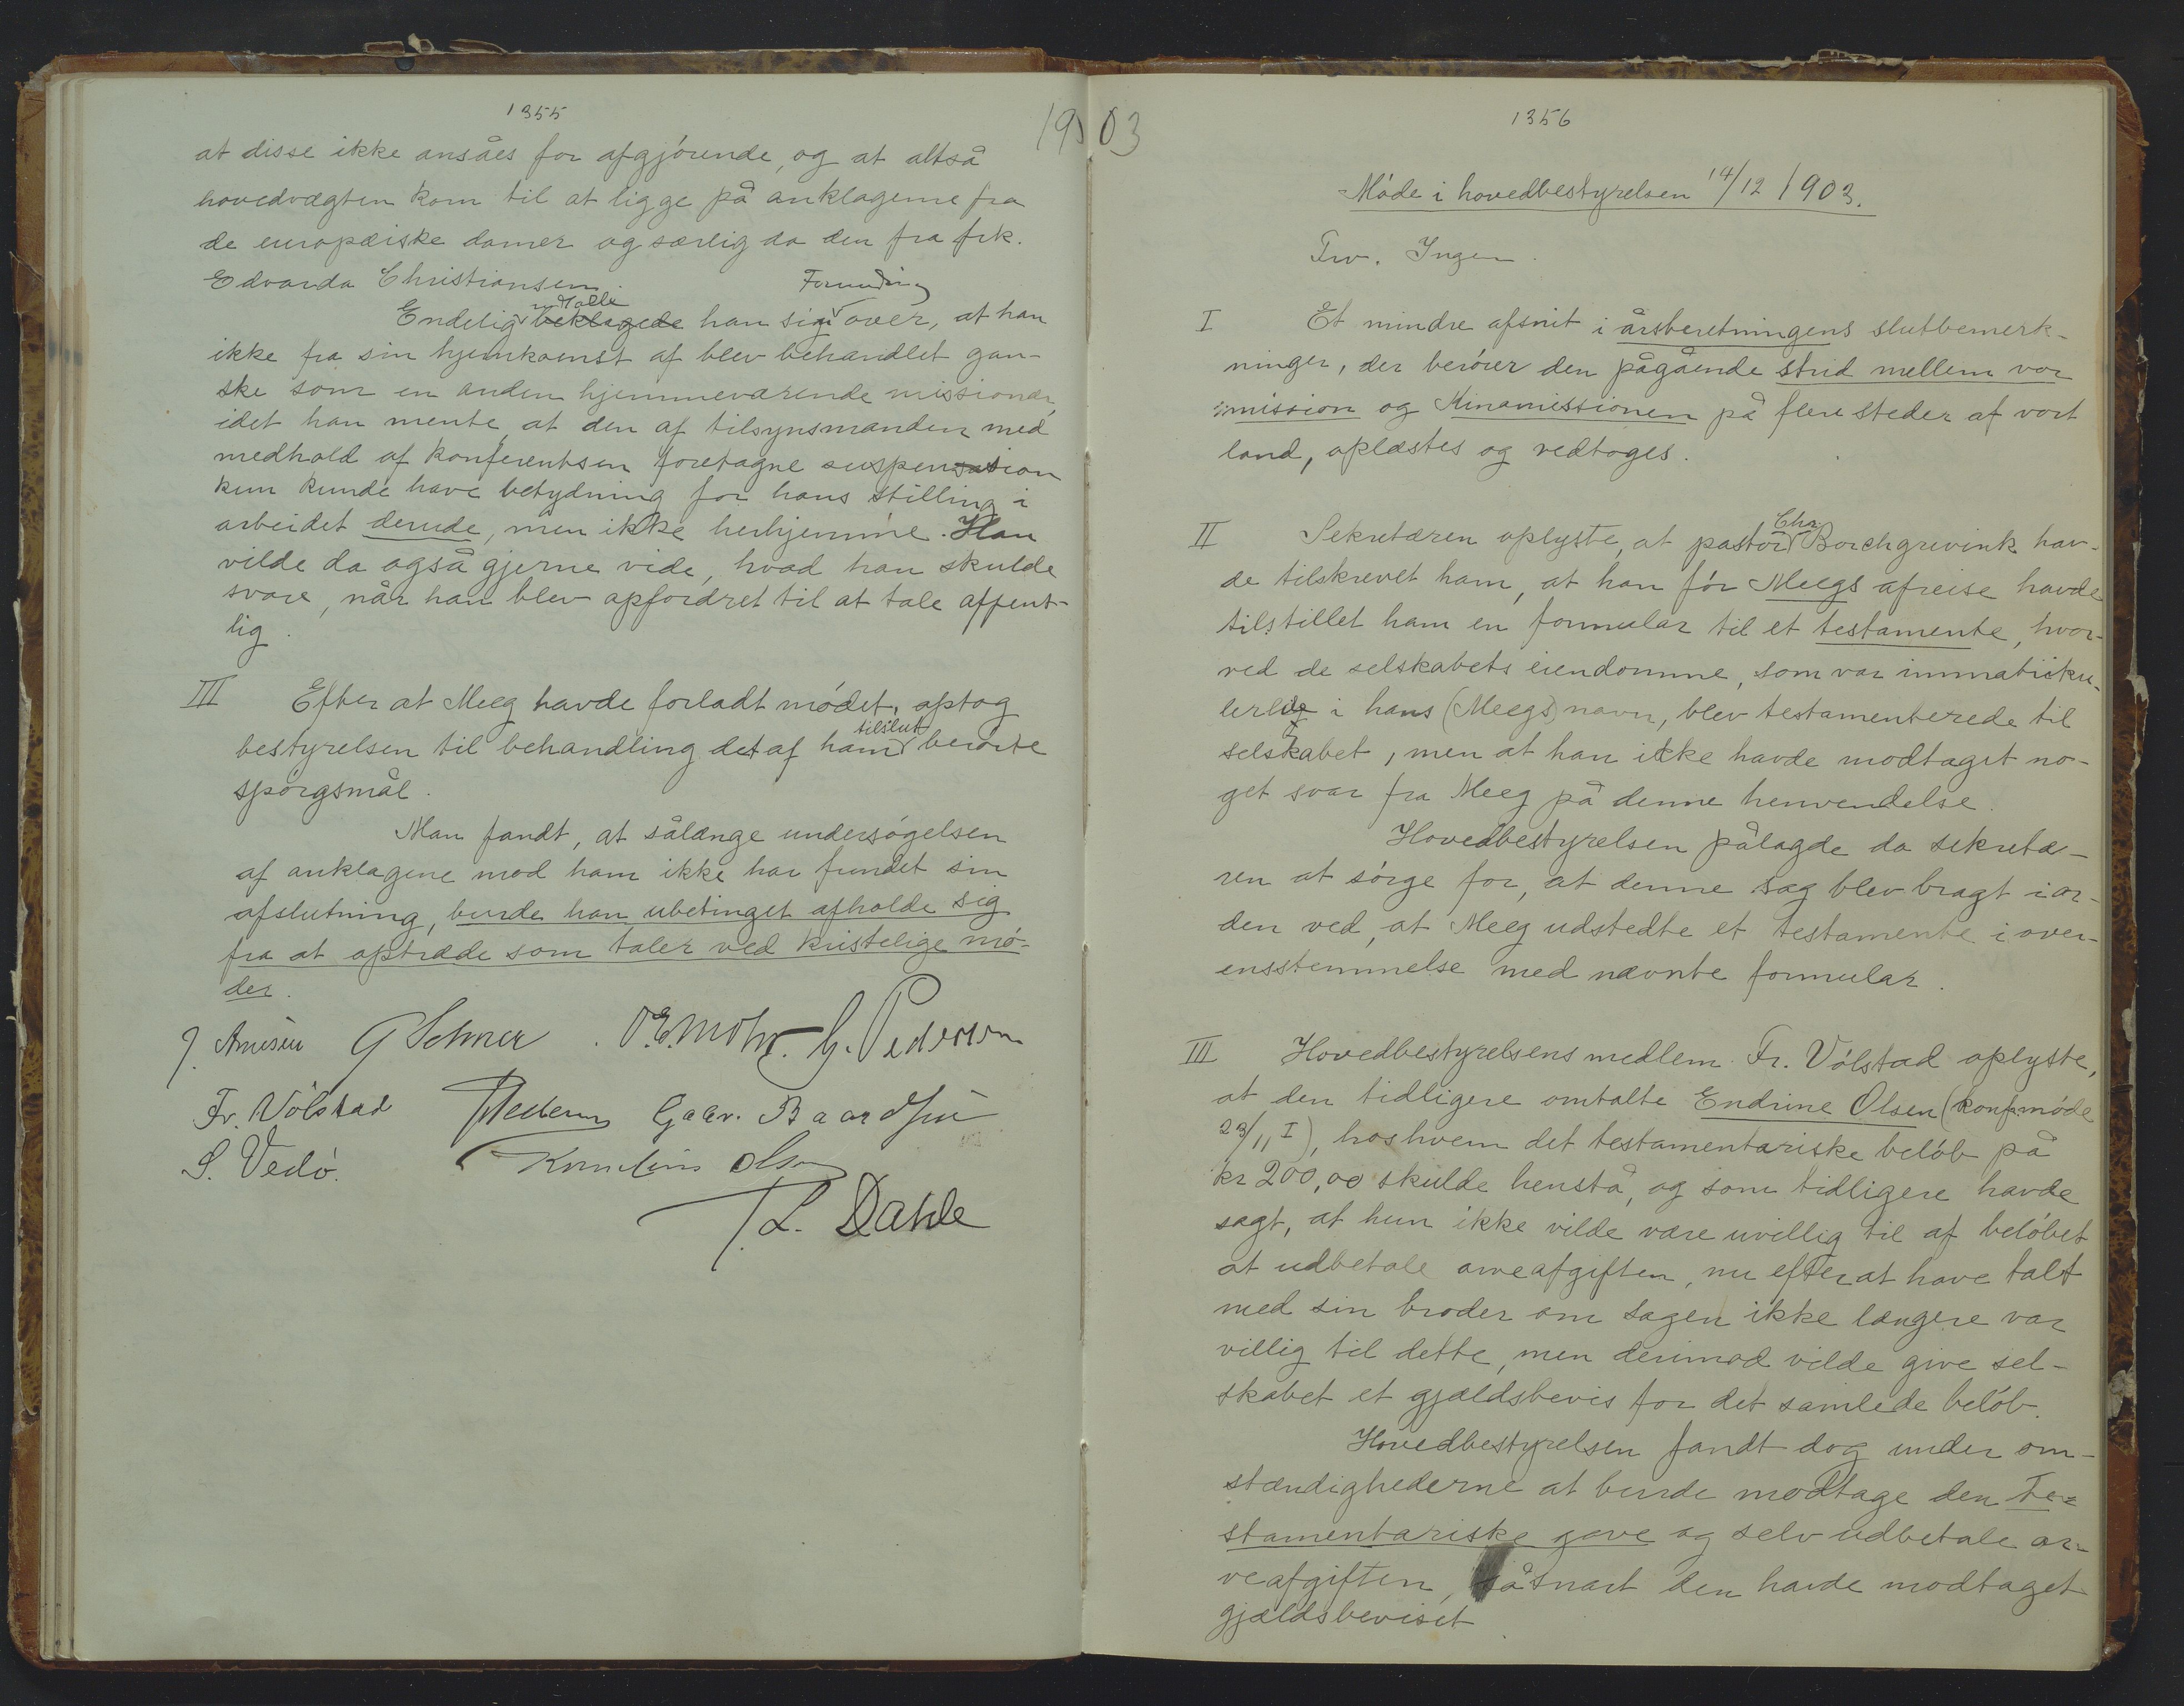 1355
1903
at disse ikke ansåes for afgjørende, og at altså
hovedvægten kom til at ligge på anklagerne fra
de europæiske damer og særlig da den fra frk.
Edvarda Christiansen.
Endelig udtalte beklagede han sin Forundring over, at han
ikke fra sin hjemkomst af blev behandlet gan-
ske som en anden hjemmeværende missionær,
idet han mente, at den af tilsynsmanden med
medhold af konferentsen foretagne suspension
kun kunde have betydning for hans stilling i
arbeidet derude, men ikke herhjemme. Han
vilde da også gjerne vide, hvad han skulde
svare, når han blev opfordret til at tale offent-
lig.
III Efter at Meeg havde forladt mødet, optog
bestyrelsen til behandling det af ham tilslut berørte
spørgsmål.
Man fandt, at sålænge undersøgelsen
af anklagene mod ham ikke har fundet sin
afslutning, burde han ubetinget afholde sig
fra at optræde som taler ved kristelige mø-
der.
J. Arnesen O.E. Mohr. G. Pedersen
Fr. Vølstad Gabr. Baardsen
S. Vedø. Kornelius Olsen
L. Dahle
1356
Møde i hovedbestyrelsen 14/12 1903.
Frv. Ingen.
I Et mindre afsnit i årsberetningens slutbemerk-
ninger, der berører den pågående strid mellem vor
mission og Kinamissionen på flere steder af vort
land, oplæstes og vedtoges.
II Sekretæren oplyste, at pastor Chr. Borchgrevink hav-
de tilskrevet ham, at han før Meegs afreise havde
tilstillet ham en formular til et testamente, hvor-
ved de selskabets eiendomme, som var immatriku-
lerte i hans (Meegs) navn, blev testamenterede til
selskabet, men at han ikke havde modtaget no-
get svar fra Meeg på denne henvendelse.
Hovedbestyrelsen pålagde da sekretæ-
ren at sørge for, at denne sag blev bragt i or-
den ved, at Meeg udstedte et testamente i over-
ensstemmelse med nævnte formular.
III Hovedbestyrelsens medlem Fr. Vølstad oplyste,
at den tidligere omtalte Endrine Olsen (konf. møde
23/11 I), hos hvem det testamentariske beløb på
kr 200,00 skulde henstå, og som tidligere havde
sagt, at hun ikke vilde være uvillig til af beløbet
at udbetale arveafgiften, nu efter at have talt
med sin broder om sagen ikke længere var
villig til dette, men derimod vilde give sel-
skabet et gjældsbevis for det samlede beløb.
Hovedbestyrelsen fandt dog under om-
stændighederne at burde modtage den te-
stamentariske gave og selv udbetale ar-
veafgiften, såsnart den havde modtaget
gjældsbeviset.